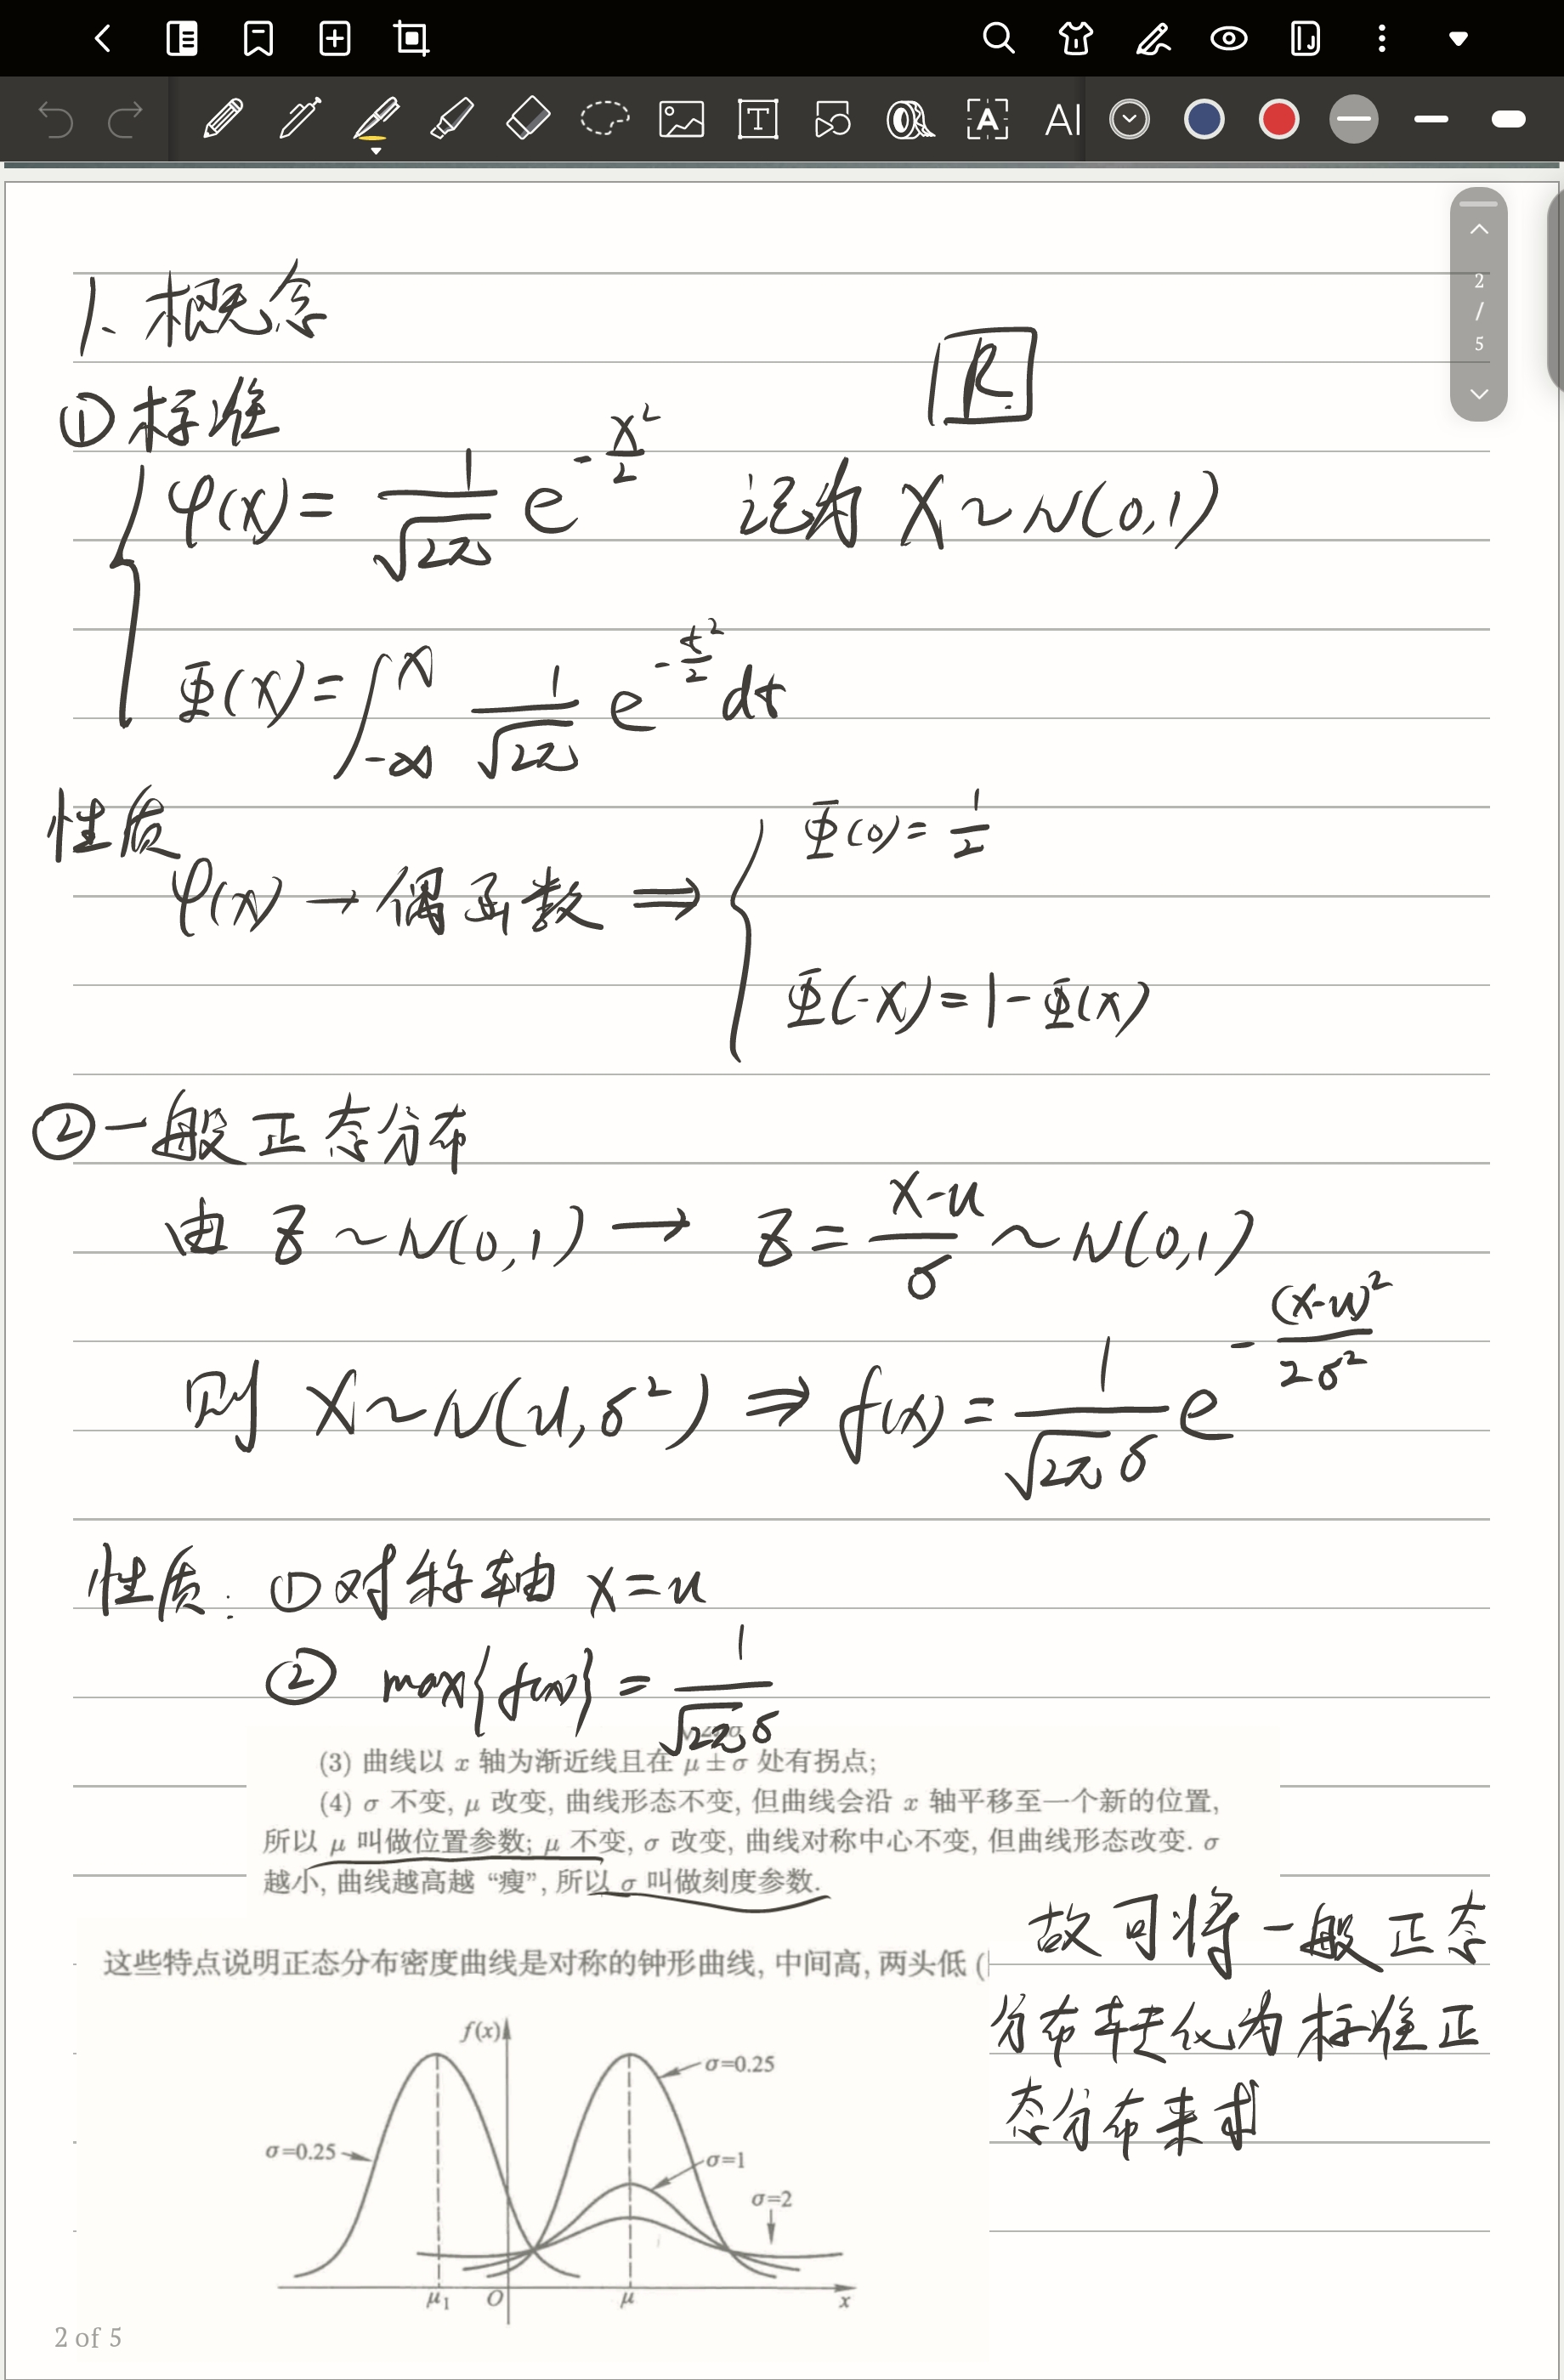 AI
2
/
5
1、概念
R.
①标准
φ(x) = 1/√2π e^(-x²/2) 记为 X~N(0,1)
Φ(x) = ∫_{-∞}^{x} 1/√2π e^(-t²/2) dt
性质
φ(x) → 偶函数 ⇒ { Φ(0) = 1/2
Φ(-x) = 1-Φ(x)
②一般正态分布
由 Z ~ N(0,1) → Z = (X-u)/σ ~ N(0,1)
则 X~N(u,σ²) ⇒ f(x) = 1/(√2π σ) e^(-(x-u)²/2σ²)
性质: ①对称轴 x=u
② max{f(x)} = 1/(√2π σ)
(3) 曲线以 x 轴为渐近线且在 μ ± σ 处有拐点;
(4) σ 不变, μ 改变, 曲线形态不变, 但曲线会沿 x 轴平移至一个新的位置,
所以 μ 叫做位置参数; μ 不变, σ 改变, 曲线对称中心不变, 但曲线形态改变. σ
越小, 曲线越高越 “瘦”, 所以 σ 叫做刻度参数.
这些特点说明正态分布密度曲线是对称的钟形曲线, 中间高, 两头低 (
故可将一般正态
分布转化为标准正
态分布来求
f(x)
σ=0.25
σ=0.25
σ=1
σ=2
μ₁ O μ x
2 of 5